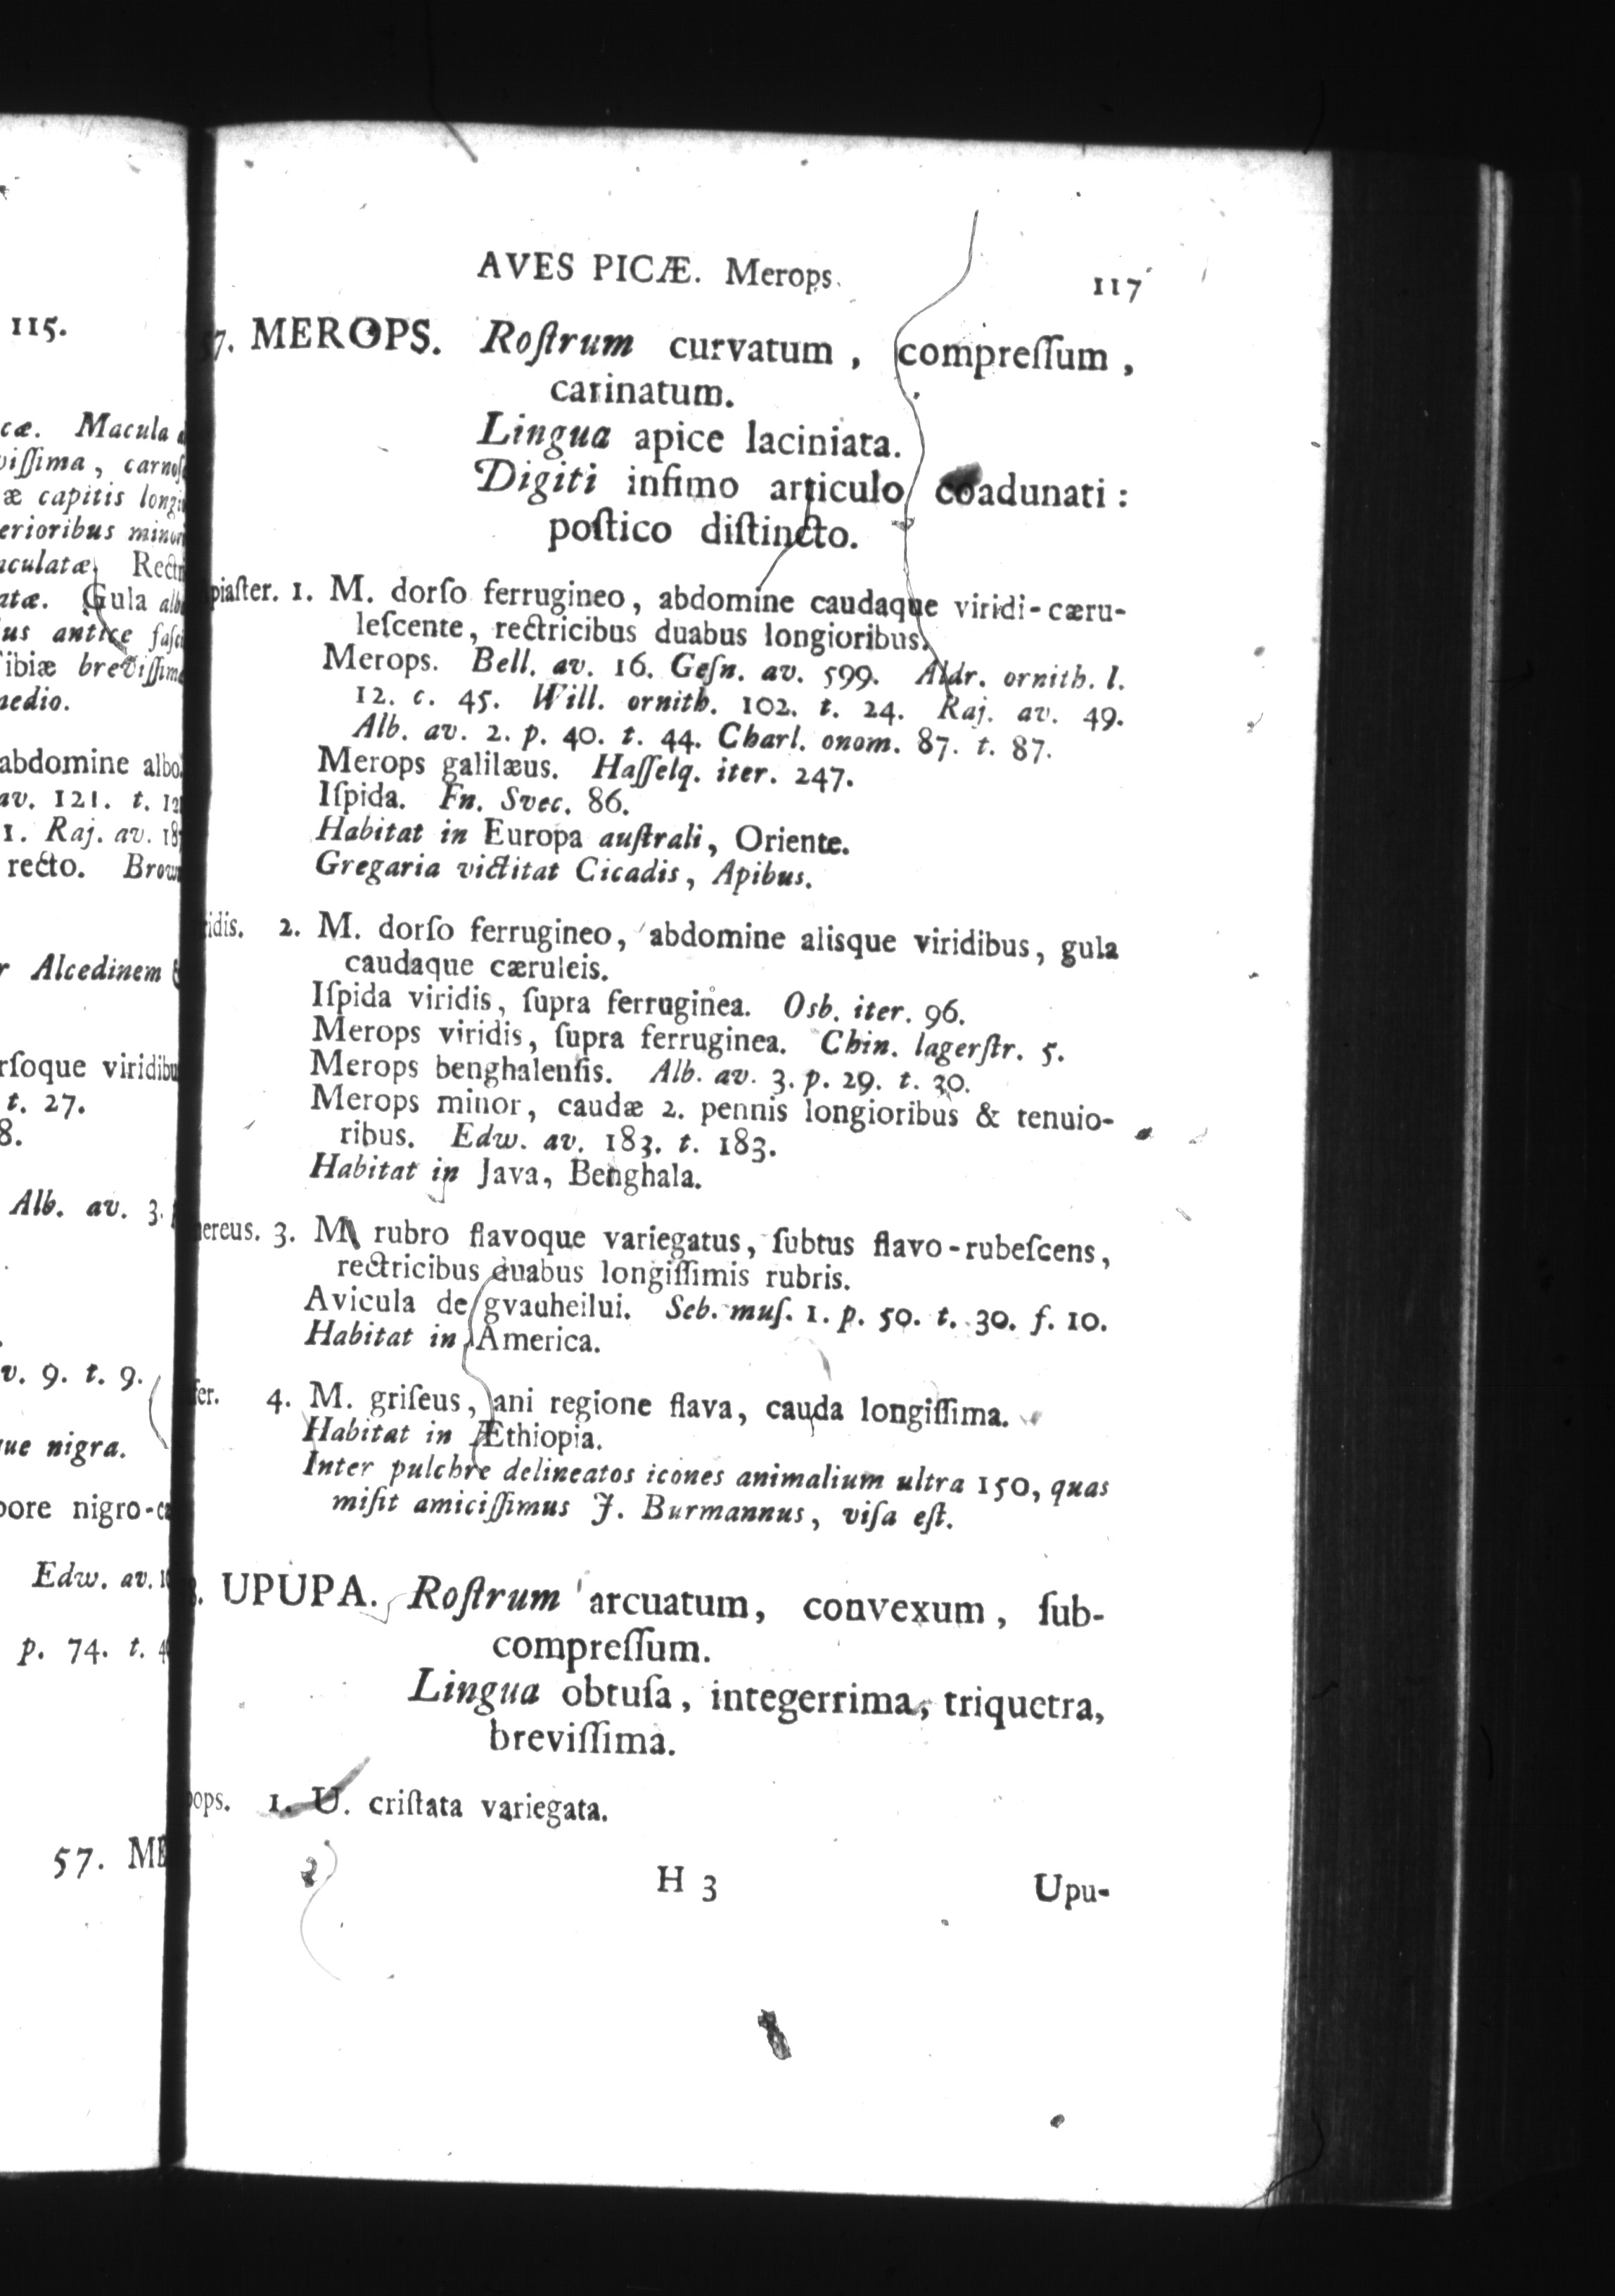 115.
cæ. Macula
viſſima, carnoſ
æ capitis longi
erioribus minori
aculatæ. Rectri
atæ. Gula alb
us antice faſci
ibiæ breviſſimæ
medio.
abdomine albo.
av. 121. t. 12
1. Raj. av. 18
recto. Brown
r Alcedinem &
rſoque viridibu
t. 27.
8.
Alb. av. 3.
v. 9. t. 9.
ue nigra.
pore nigro-cæ
Edw. av. 1
p. 74. t. 4
57. ME
AVES PICÆ. Merops. 117
57. MEROPS. Roſtrum curvatum, compreſſum,
carinatum.
Lingua apice laciniata.
Digiti infimo articulo coadunati:
poſtico diſtincto.
piaſter. 1. M. dorſo ferrugineo, abdomine caudaque viridi-cæru-
leſcente, rectricibus duabus longioribus.
Merops. Bell. av. 16. Geſn. av. 599. Aldr. ornith. l.
12. c. 45. Will. ornith. 102. t. 24. Raj. av. 49.
Alb. av. 2. p. 40. t. 44. Charl. onom. 87. t. 87.
Merops galilæus. Haſſelq. iter. 247.
Iſpida. Fn. Svec. 86.
Habitat in Europa auſtrali, Oriente.
Gregaria victitat Cicadis, Apibus.
ridis. 2. M. dorſo ferrugineo, abdomine alisque viridibus, gula
caudaque cæruleis.
Iſpida viridis, ſupra ferruginea. Osb. iter. 96.
Merops viridis, ſupra ferruginea. Chin. lagerſtr. 5.
Merops benghalenſis. Alb. av. 3. p. 29. t. 30.
Merops minor, caudæ 2. pennis longioribus & tenuio-
ribus. Edw. av. 183. t. 183.
Habitat in Java, Benghala.
nereus. 3. M. rubro flavoque variegatus, ſubtus flavo-rubeſcens,
rectricibus duabus longiſſimis rubris.
Avicula de gvauheilui. Seb. muſ. 1. p. 50. t. 30. f. 10.
Habitat in America.
fer. 4. M. griſeus, ani regione flava, cauda longiſſima.
Habitat in Æthiopia.
Inter pulchre delineatos icones animalium ultra 150, quas
miſit amiciſſimus J. Burmannus, viſa eſt.
UPUPA. Roſtrum arcuatum, convexum, ſub-
compreſſum.
Lingua obtuſa, integerrima, triquetra,
breviſſima.
pops. 1. U. criſtata variegata.
H 3 Upu-